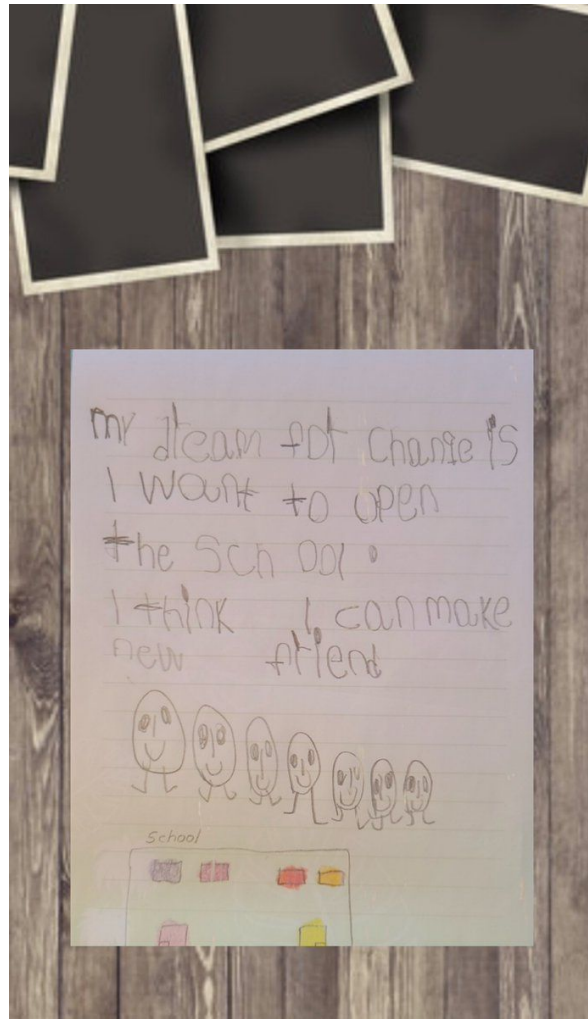 my dream for change is
I want to open
the School.
I think I can make
new friend
School